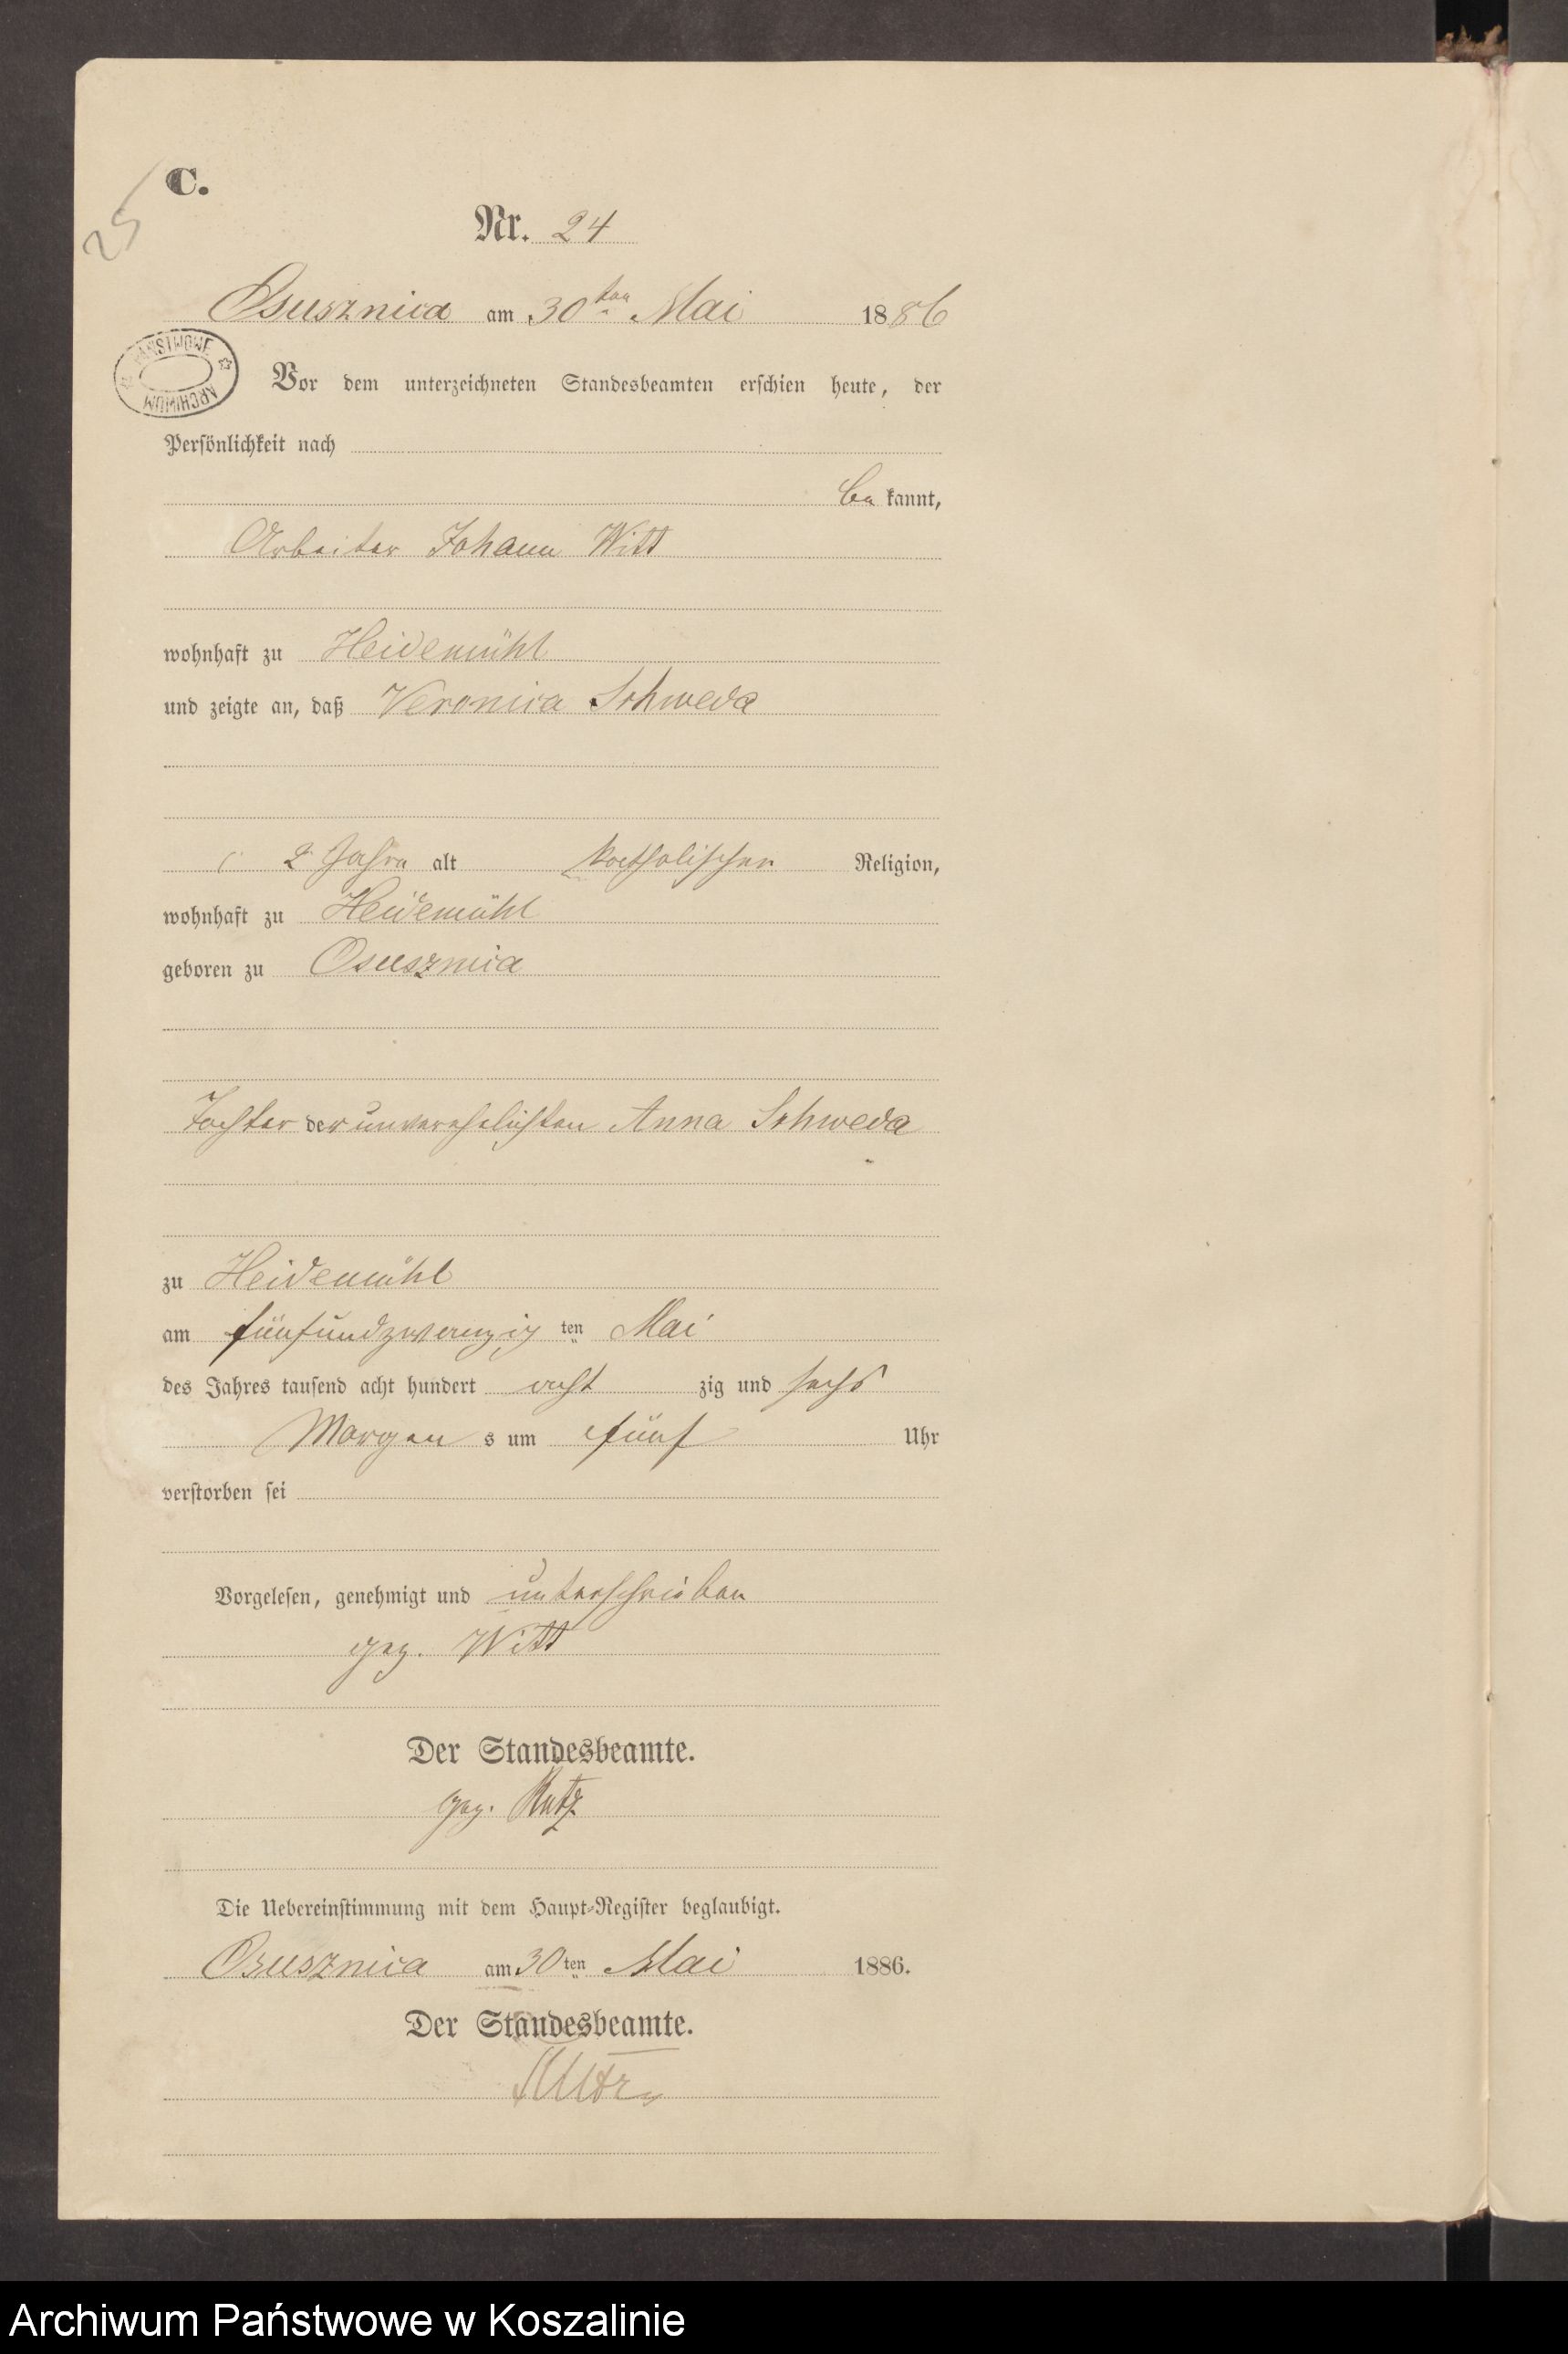 25
C.
Nr. 24
Osusznica am 30ten Mai 1886
PAŃSTWOWE ARCHIWUM
Vor dem unterzeichneten Standesbeamten erschien heute, der
Persönlichkeit nach
be kannt,
Arbeiter Johann Witt
wohnhaft zu Heidemühl
und zeigte an, daß Veronica Schweda
2 Jahre alt katholischer Religion,
wohnhaft zu Heidemühl
geboren zu Osusznica
Tochter der unverehelichten Anna Schweda
zu Heidemühl
am fünfundzwanzig ten Mai
des Jahres tausend acht hundert acht zig und sechs
Morgen s um fünf Uhr
verstorben sei
Vorgelesen, genehmigt und unterschrieben
gez. Witt
Der Standesbeamte.
gez. Kutz
Die Uebereinstimmung mit dem Haupt-Register beglaubigt.
Osusznica am 30ten Mai 1886.
Der Standesbeamte.
Archiwum Państwowe w Koszalinie